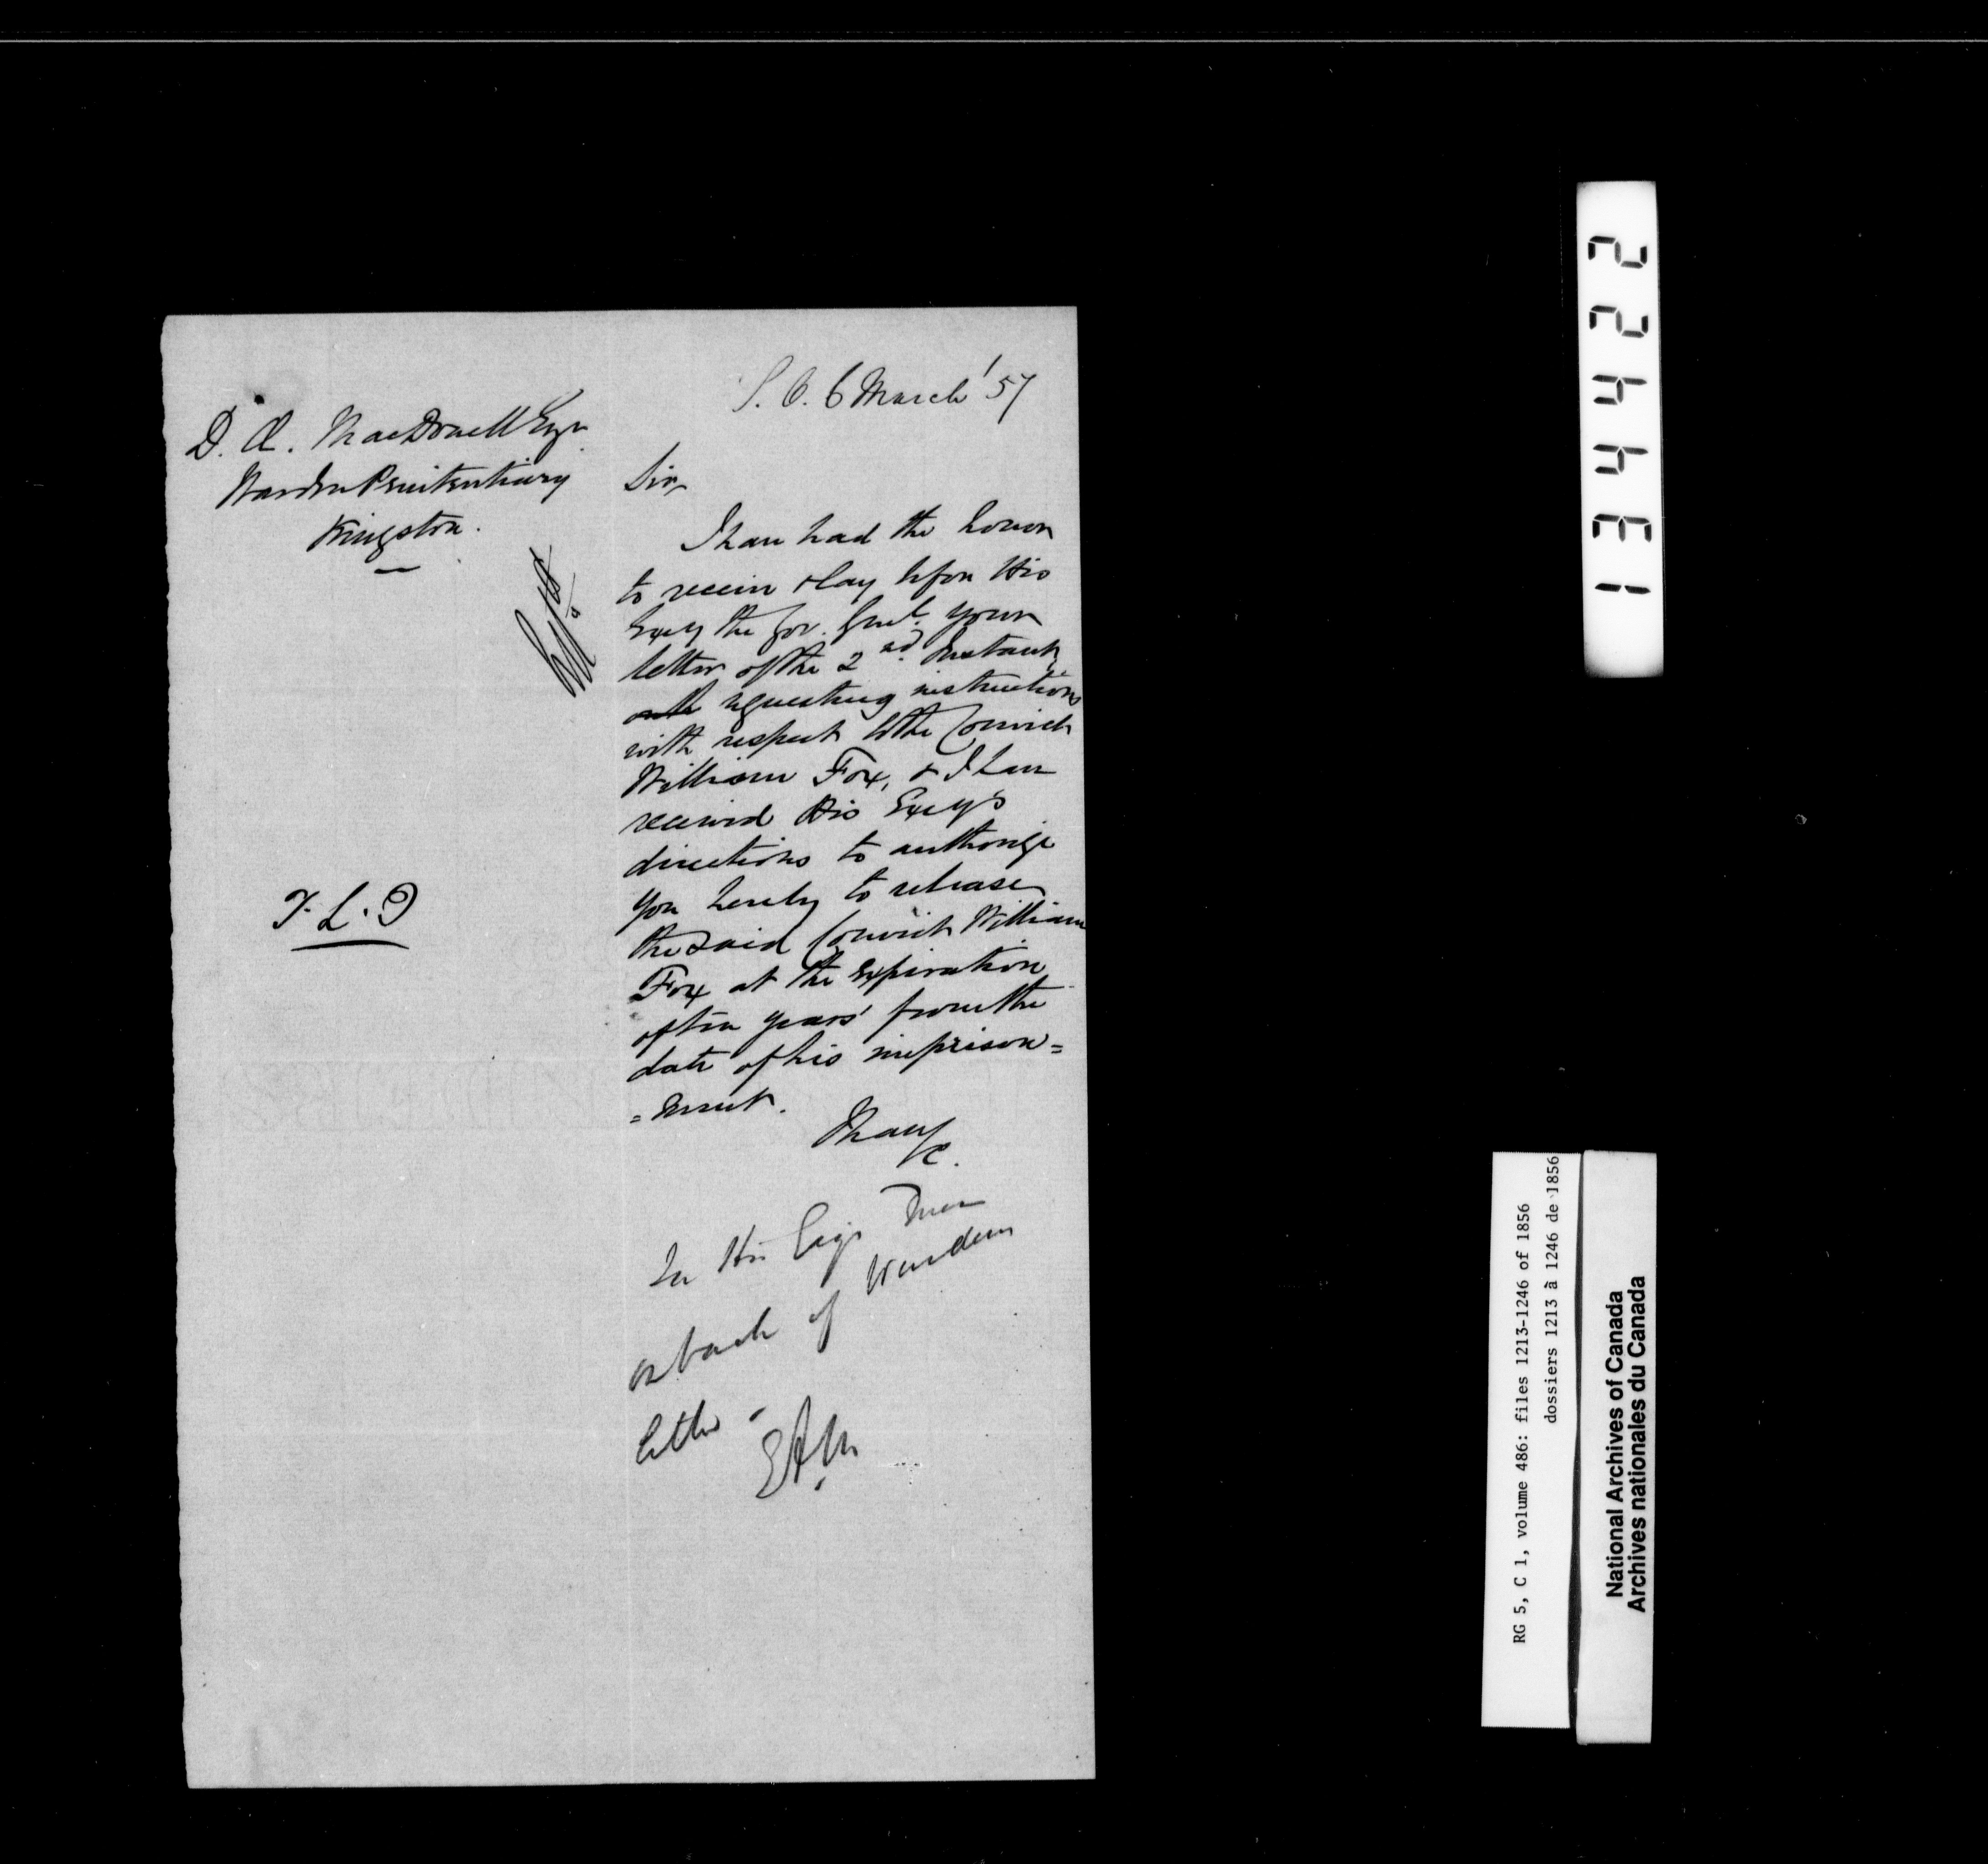 S. O. 6 March '57
D. Æ. MacDonell Esqr
Warden Penitentiary
Kingston.
Sir,
I have had the honor
to receive & lay before His
Excy the Gov. Genl. your
letter of the 2nd Instant,
requesting instructions
with respect to the Convict
William Fox, & I have
received His Excy's
directions to authorize
you hereby to release
the said Convict William
Fox at the expiration
of ten years' from the
date of his imprison=
=ment.
I have &c.
T. L. D
His Excys Mem
on back of Wardens
letter.
EAM
134422
RG 5, C 1, volume 486: files 1213-1246 of 1856
dossiers 1213 à 1246 de 1856
National Archives of Canada
Archives nationales du Canada